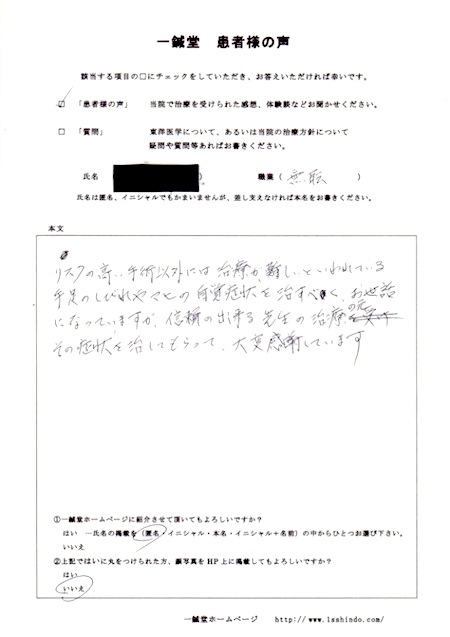 一鍼堂 患者様の声
該当する項目の□にチェックをしていただき、お答えいただければ幸いです。
□ 「患者様の声」 当院で治療を受けられた感想、体験談などお聞かせください。
□ 「質問」 東洋医学について、あるいは当院の治療方針について
疑問や質問等あればお書きください。
氏名 ( ) 職業 ( 無職 )
氏名は匿名、イニシャルでもかまいませんが、差し支えなければ本名をお書きください。
本文
リスクの高い手術以外には治療が難しいといわれている
手足のしびれやマヒの自覚症状を治すべく、お世話
になっていますが、信頼の出来る先生の治療の元
その症状を治してもらって、大変感謝しています
①一鍼堂ホームページに紹介させて頂いてもよろしいですか?
はい ー氏名の掲載を(匿名・イニシャル・本名・イニシャル+名前)の中からひとつお選び下さい。
いいえ
②上記ではいに丸をつけられた方、顔写真をHP上に掲載してもよろしいですか?
はい
いいえ
一鍼堂ホームページ http://www.lsshindo.com/